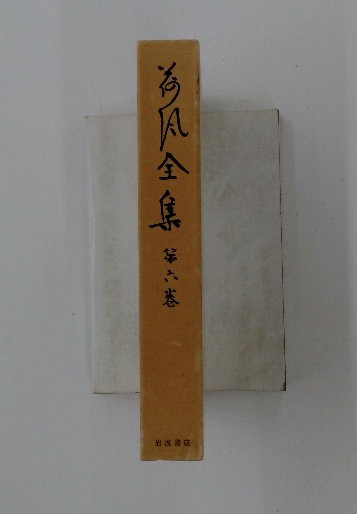 荷风全集
第六巻
岩波書店